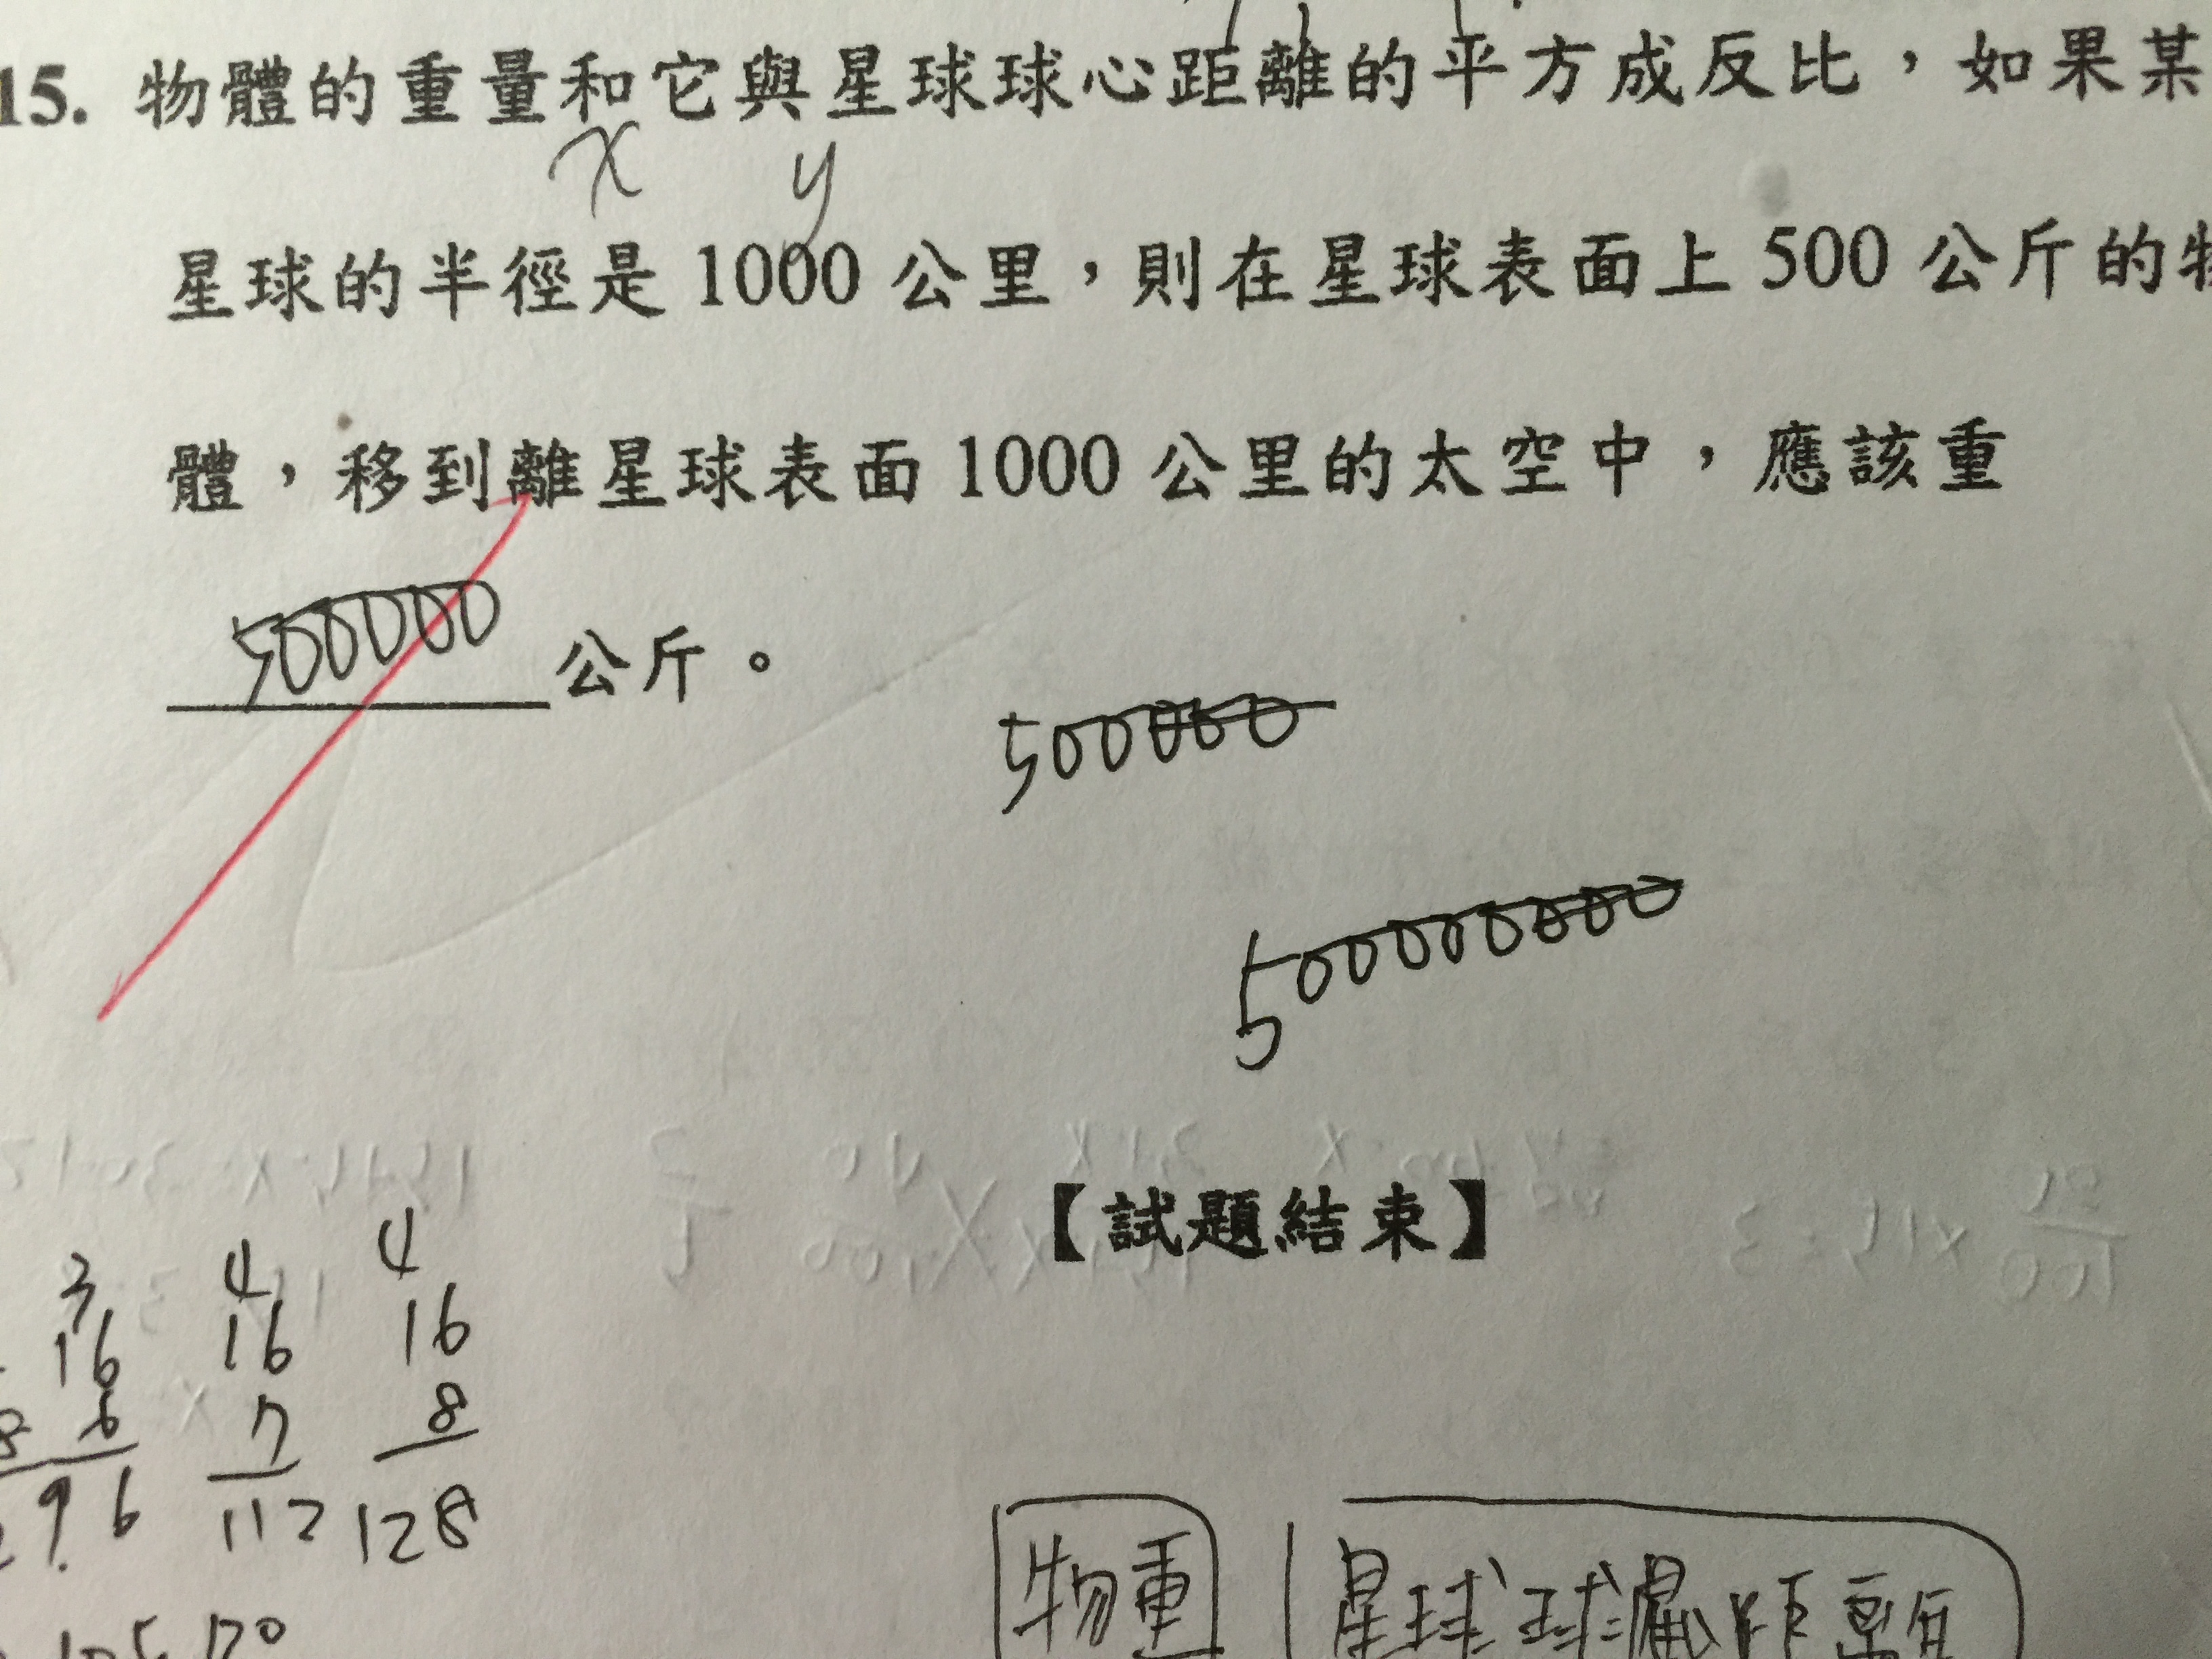 15. 物體的重量和它與星球球心距離的平方成反比，如果某
x y
星球的半徑是 1000 公里，則在星球表面上 500 公斤的物
體，移到離星球表面 1000 公里的太空中，應該重
500000 公斤。
500000
500000000
【試題結束】
3 4 4
16 16 16
8 6 7 8
96 112 128
物重 星球球 距離